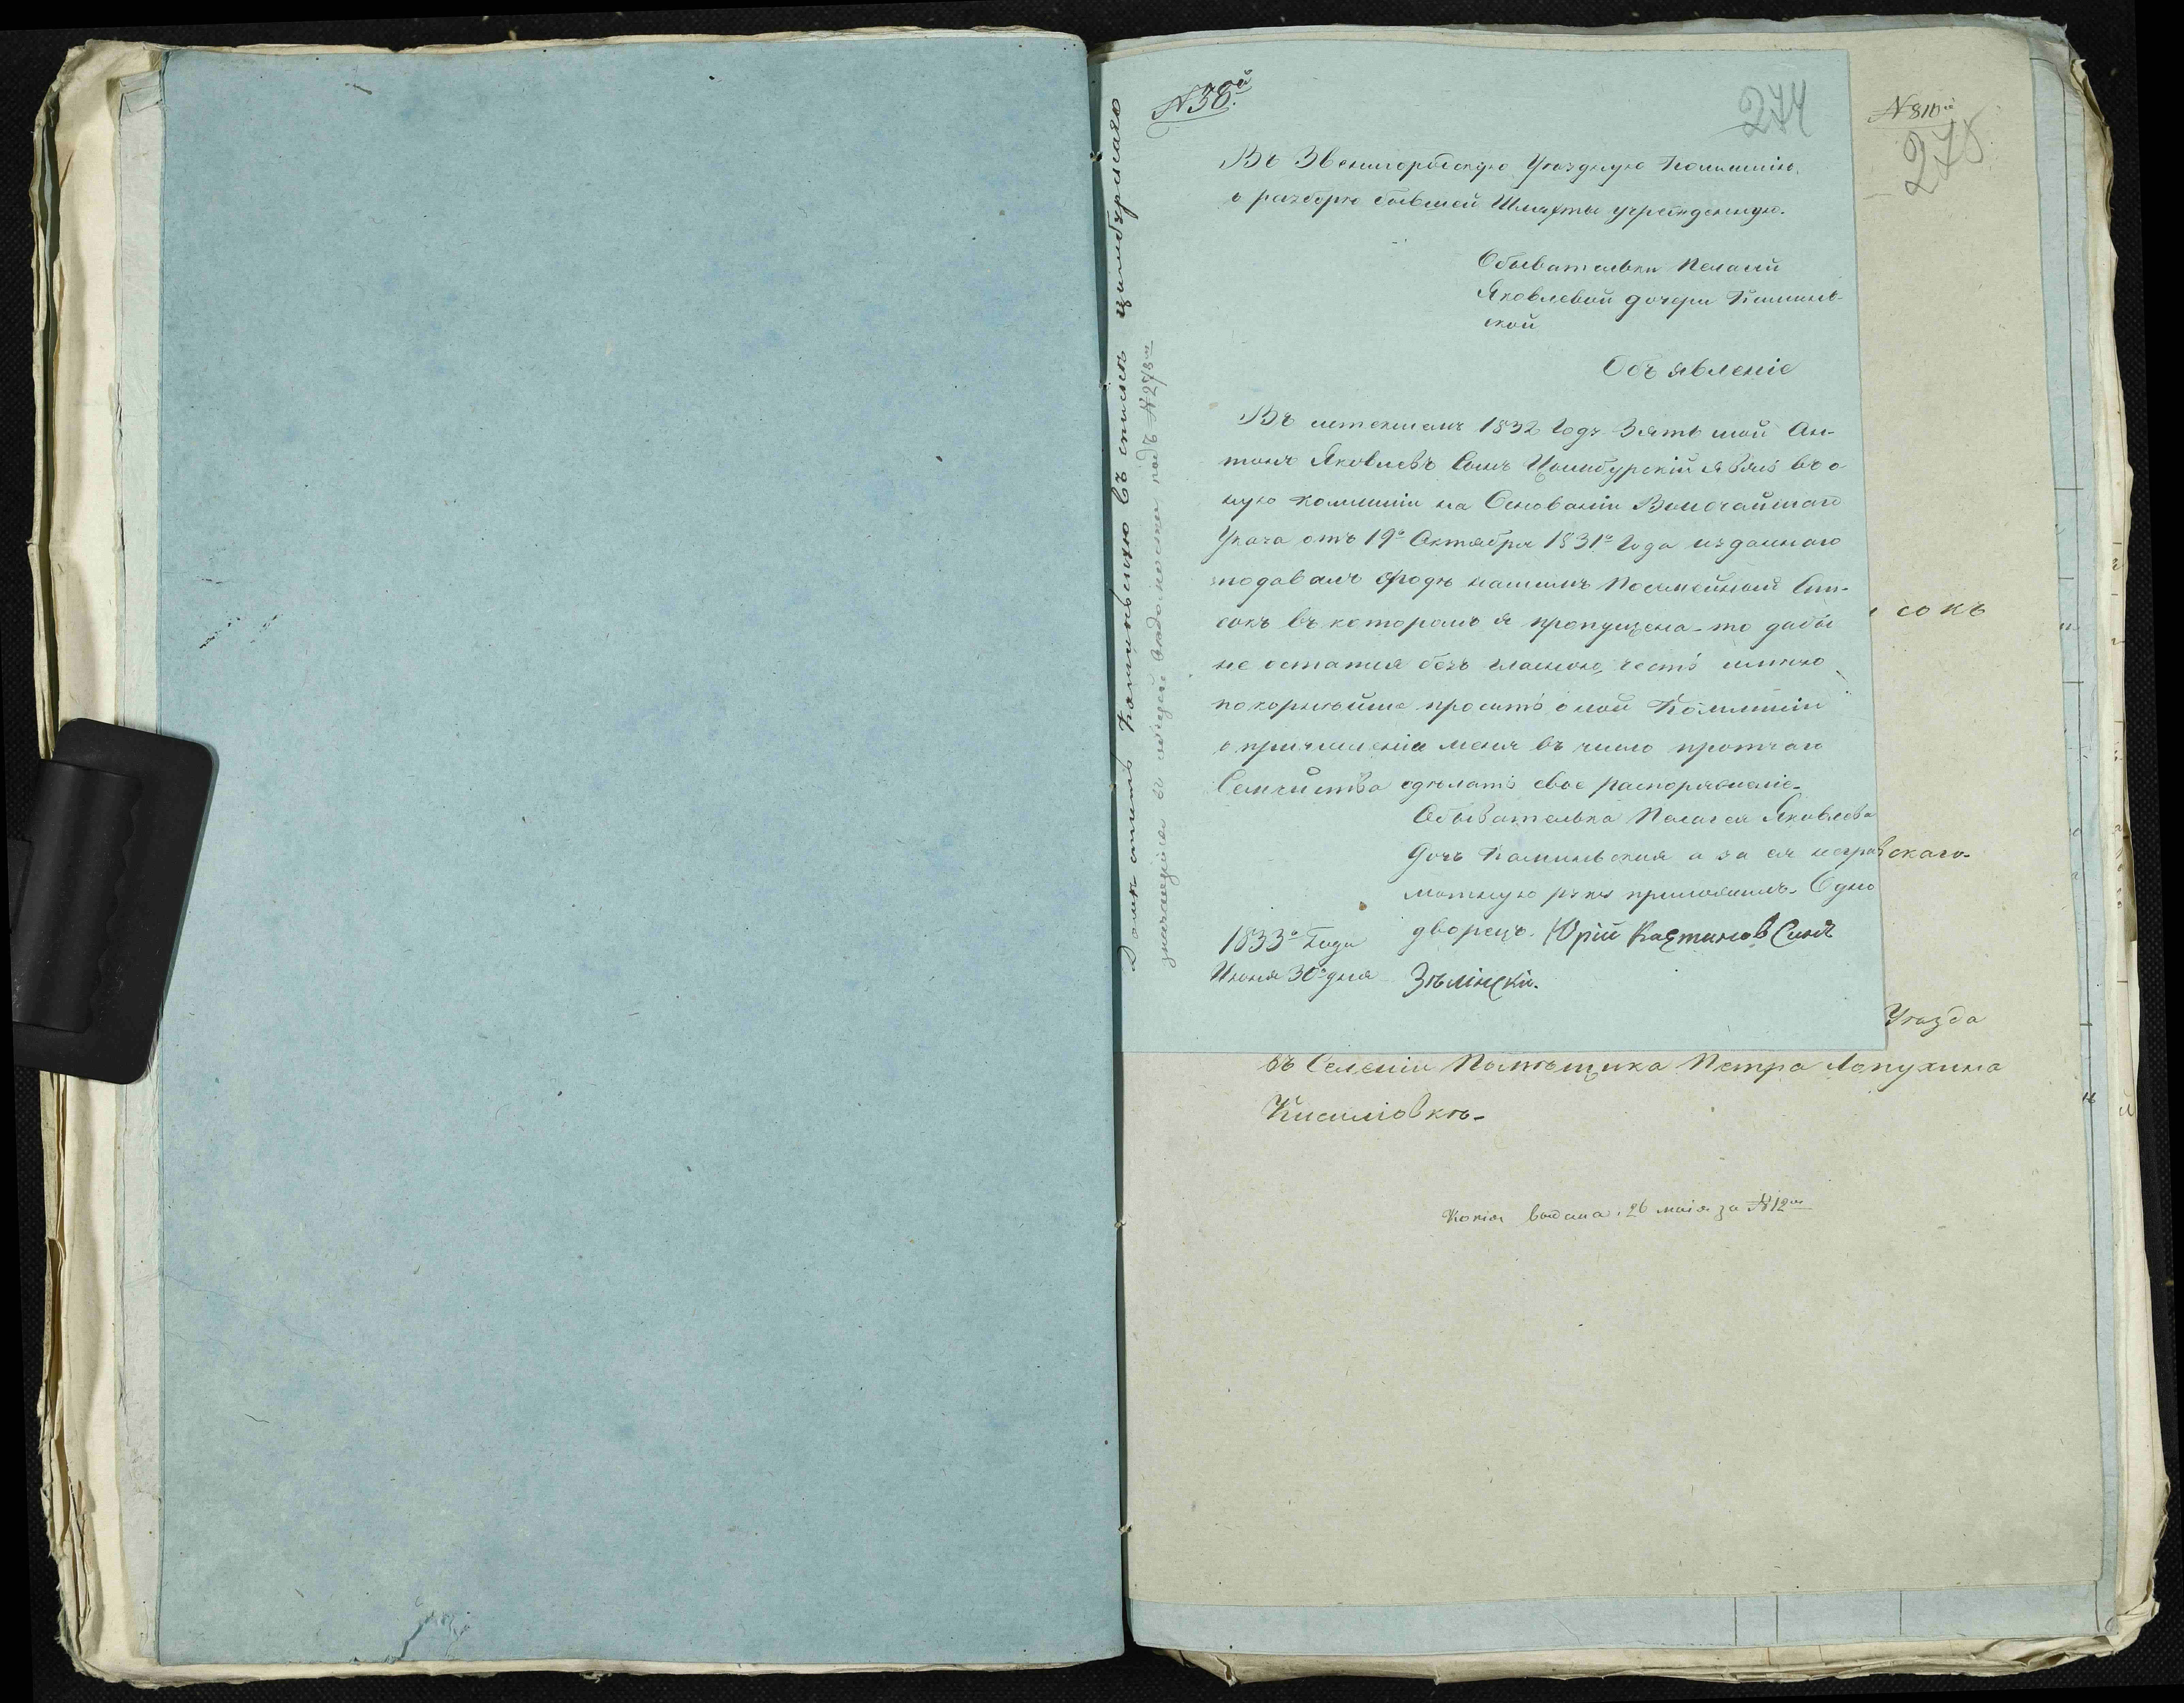 N 38й
274
Въ Звенигородскую Уѣздную Комиссію,
о разборѣ бывшей Шляхты учрежденную.
Обывательки Пелагии
Яковлевой дочери Каминьс-
ской
Объявленіе
Въ истекшемъ 1832 Годѣ Зять мой Ан-
тонъ Яковлевъ Сынъ Цимбурскій въ о
ную комиссіи на Основаніи Высочайшаго
Указа отъ 19º Октября 1831º Года изданнаго
подавалъ о родѣ нашимъ Посемейный Спи-
сокъ въ которомъ я пропущена - то дабы
не остатся безъ честь имѣю
покорнѣйше просить оной Комиссіи
о причисленіи меня въ число протчаго
Семейства сдѣлать свое распоряженіе.
Обывателька Пелагея Яковлева
Дочь Каминьская а за ея неграмотную руку приложилъ. Одно
дворецъ. Юрій Ка Синъ
Зѣлінскій.
1833º Года
Июня 30º дня
Каминьскую въ списокъ Цимбурскаго
подъ N 273
N 810й
275
сокъ
скаго.
Уѣзда
въ Селеніи Помѣщика Петра Лопухина
Кисиліовкѣ.
Копія выдана 26 маія за N 12